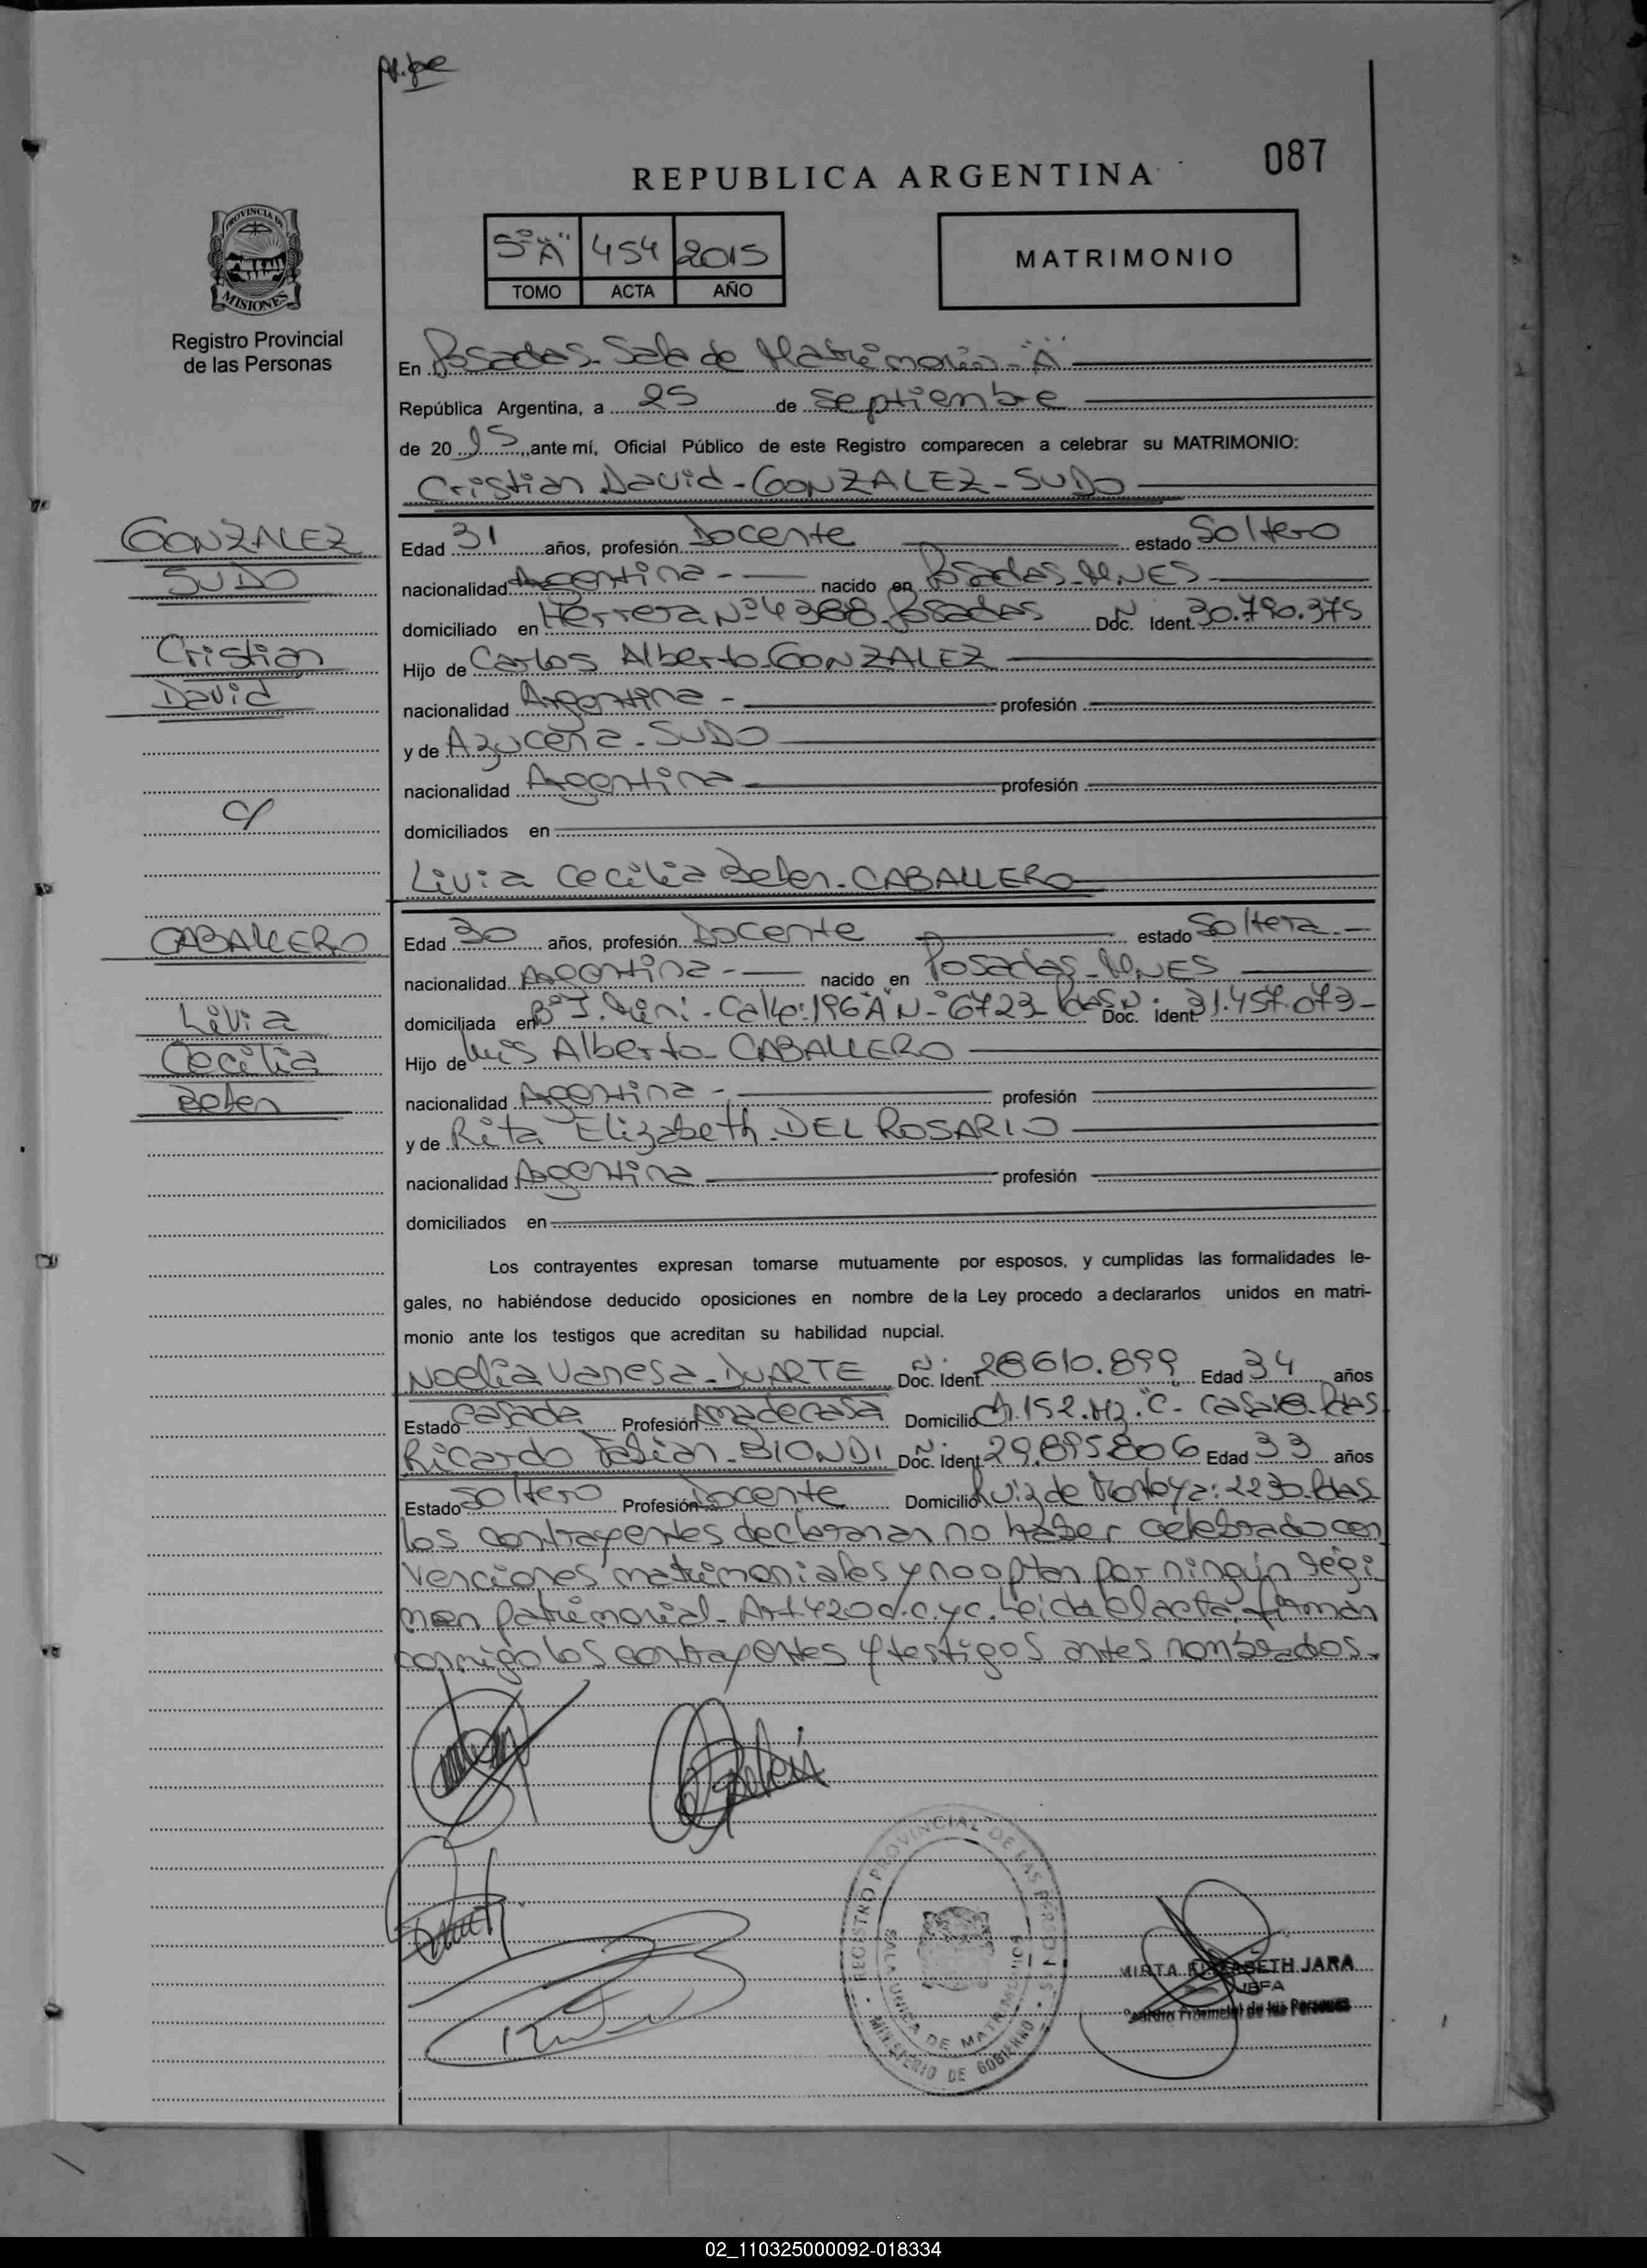 087
REPUBLICA ARGENTINA
PROVINCIA DE
MISIONES
Registro Provincial
de las Personas
5º "A" 454 2015
TOMO ACTA AÑO
MATRIMONIO
En Posadas - Sala de Matrimonio - "A"
República Argentina, a 25 de Septiembre
de 2015, ante mí, Oficial Público de este Registro comparecen a celebrar su MATRIMONIO:
Cristian David - GONZALEZ - SUDO
GONZALEZ
SUDO
Cristian
David
c/
CABALLERO
Livia
Cecilia
Belen
Edad 31 años, profesión Docente estado Soltero
nacionalidad Argentina - nacido en Posadas - MNES
domiciliado en Herrera Nº 4388 - Posadas Doc. Ident. Nº 30.790.375
Hijo de Carlos Alberto - GONZALEZ
nacionalidad Argentina - profesión
y de Azucena - SUDO
nacionalidad Argentina profesión
domiciliados en
Livia Cecilia Belen - CABALLERO
Edad 30 años, profesión Docente estado Soltera -
nacionalidad Argentina - nacido en Posadas - MNES
domiciliada en Bº - Calle: 196 "A" Nº 6723 Pdas Doc. Ident. Nº 31.457.073 -
Hijo de Luis Alberto - CABALLERO
nacionalidad Argentina - profesión
y de Rita Elizabeth - DEL ROSARIO
nacionalidad Argentina profesión
domiciliados en
Los contrayentes expresan tomarse mutuamente por esposos, y cumplidas las formalidades le-
gales, no habiéndose deducido oposiciones en nombre de la Ley procedo a declararlos unidos en matri-
monio ante los testigos que acreditan su habilidad nupcial.
Noelia Vanesa - DUARTE Doc. Ident. Nº 28610.899 Edad 34 años
Estado Casada Profesión Amadecasa Domicilio Ch. 152. Mz. "C" - Casa Pdas
Ricardo Fabian - BIONDI Doc. Ident. Nº 29.895.806 Edad 33 años
Estado Soltero Profesión Docente Domicilio Ruiz de Montoya: 2230 - Pdas
los contrayentes declararan no haber celebrado con
venciones matrimoniales y no optan por ningún regi
men patrimonial - Art 420 d. C. y C. Leida el acta, firman
conmigo los contrayentes y testigos antes nombrados.
REGISTRO PROVINCIAL DE LAS PERSONAS
SALA UNICA DE MATRIMONIOS
MINISTERIO DE GOBIERNO
MIRTA ELIZABETH JARA
JEFA
Registro Provincial de las Personas
02_110325000092-018334